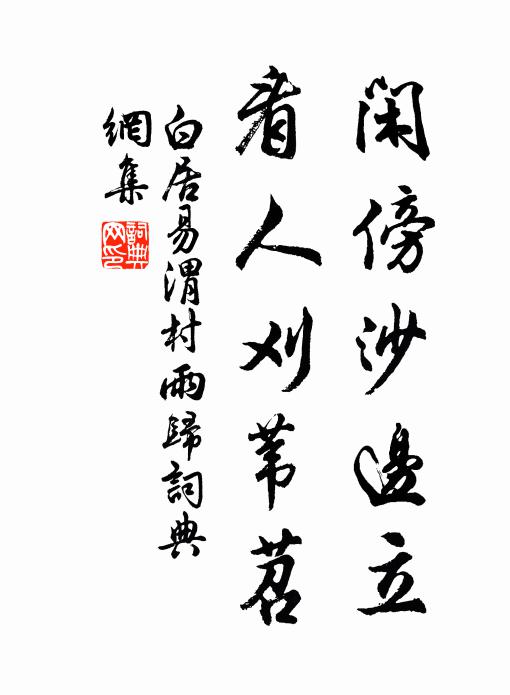 闲傍沙邊立
看人刈苇苕
白居易渭村雨歸詞典
網集
詞典
网印